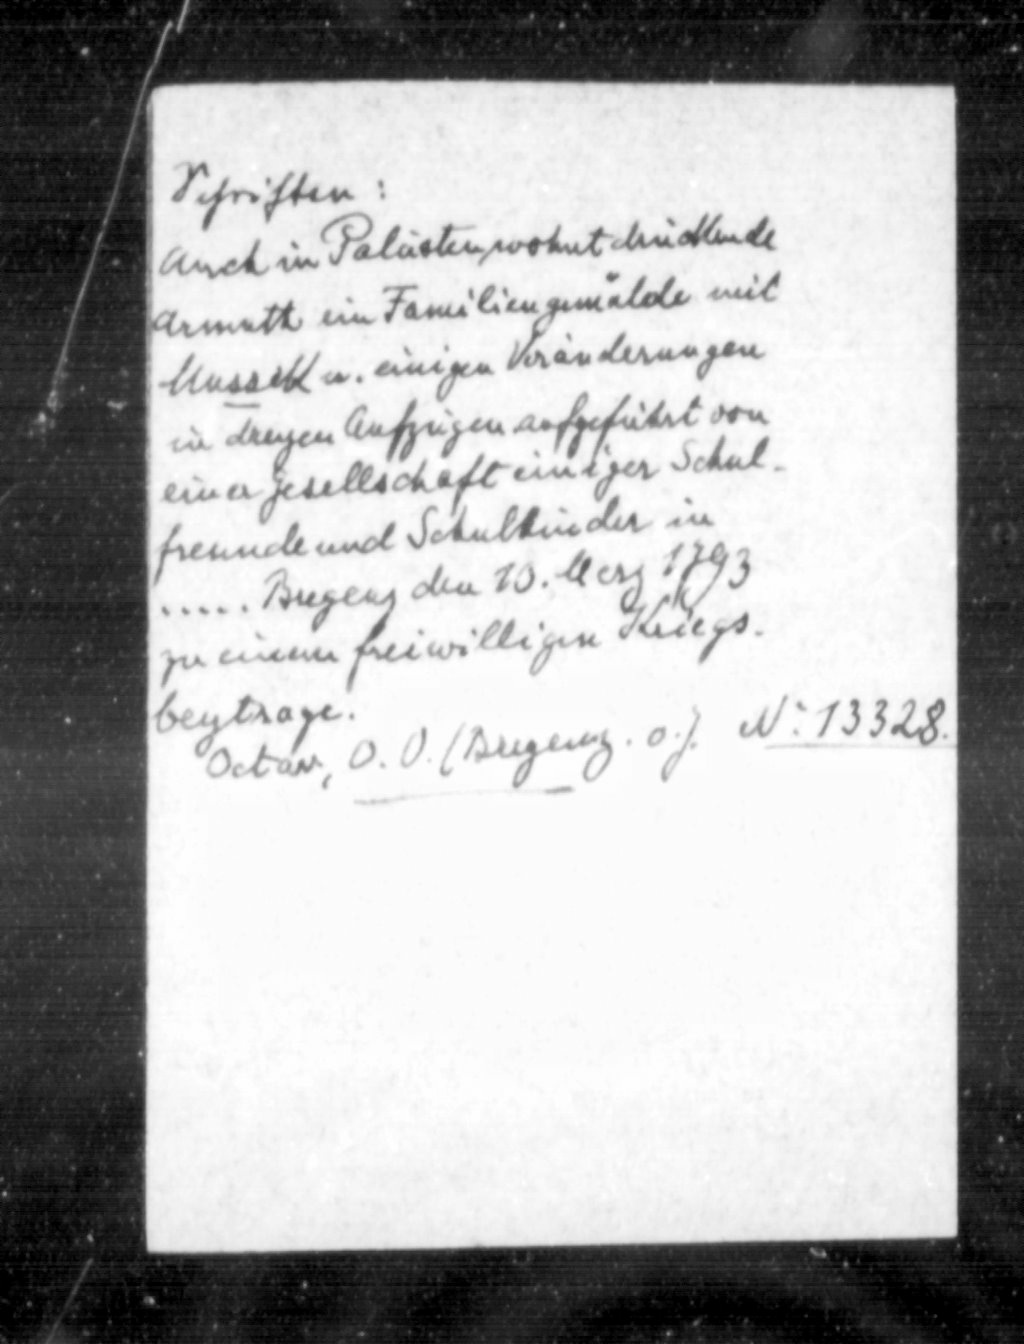 Schriften:
Auch in Palästen, wohnt drückende
Armuth ein Familiengemälde mit
Mussik u. einigen Veränderungen
in dreyen Aufzügen aufgeführt von
einer Gesellschaft einiger Schul-
freunde und Schulkinder in
..... Bregenz den 10. Merz 1793
zu einem freiwilligen Kriegs-
beytrage.
Octav, O. O. (Bregenz. o.J. No: 13328.